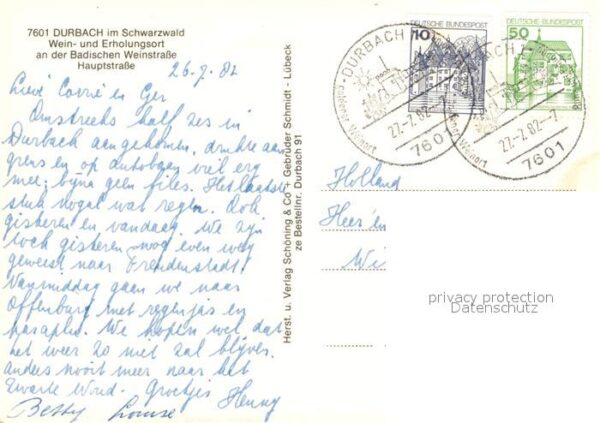 7601 DURBACH im Schwarzwald
Wein- und Erholungsort
an der Badischen Weinstraße
Hauptstraße
26.7.82
Lieve Corrie en Ger
Omstreeks half zes in
Durbach aangekomen, drukte aan
grens en op autobaan viel erg
mee, bijna geen files. Het laatste
stuk nogal wat regen. Ook
gisteren en vandaag. We zijn
toch gisteren nog even weg
geweest naar Freudenstadt.
Vanmiddag gaan we naar
Offenburg met regenjas en
paraplu. We hopen wel dat
het weer zo niet zal blijven
anders nooit meer naar het
Zwarte Woud. Groetjes Henny
Betty Louise
Herst. u. Verlag Schöning & Co + Gebrüder Schmidt - Lübeck
ze Bestellnr. Durbach 91
DEUTSCHE BUNDESPOST
10
DEUTSCHE BUNDESPOST
50
DURBACH
27.-7.82.-7
7601
27.-7.82.-7
7601
Holland
Heer en
Wi
privacy protection
Datenschutz